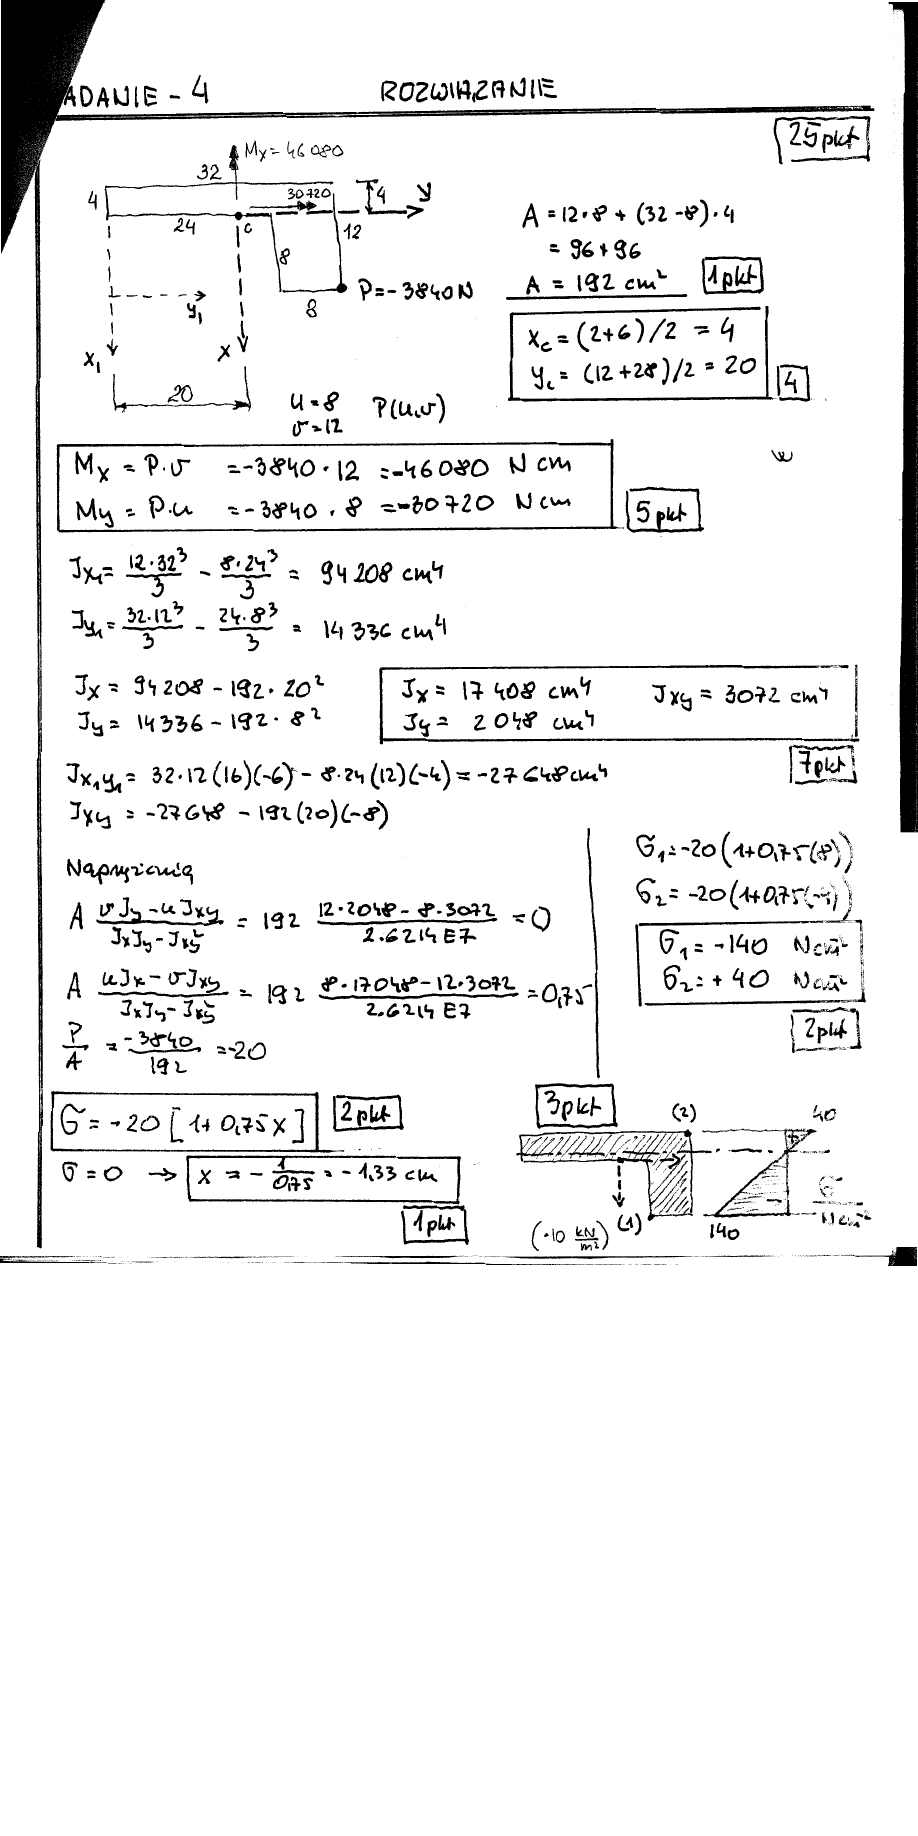 ADANIE - 4 ROZWIĄZANIE
25pkt
Mx = 46080
32
4
30720
4
y
24
c
12
8
P = -3840 N
8
y₁
x₁
x
20
u = 8 P(u,v)
v = 12
A = 12·8 + (32-8)·4
= 96+96
A = 192 cm² 1pkt
xc = (2+6)/2 = 4
yc = (12+28)/2 = 20
4
w
Mx = P·v = -3840·12 = -46080 N cm
My = P·u = -3840·8 = -30720 N cm
5pkt
Jx₁ = 12·32³/3 - 8·24³/3 = 94208 cm⁴
Jy₁ = 32·12³/3 - 24·8³/3 = 14336 cm⁴
Jx = 94208 - 192·20²
Jy = 14336 - 192·8²
Jx = 17408 cm⁴ Jxy = 3072 cm⁴
Jy = 2048 cm⁴
7pkt
Jx₁y₁ = 32·12(16)(-6) - 8·24(12)(-4) = -27648 cm⁴
Jxy = -27648 - 192(20)(-8)
Naprężenia
A (vJy - uJxy)/(JxJy - Jxy²) = 192 (12·2048 - 8·3072)/2.6214E7 = 0
A (uJx - vJxy)/(JxJy - Jxy²) = 192 (8·17048 - 12·3072)/2.6214E7 = 0,75
P/A = -3840/192 = -20
G₁ = -20(1+0,75(8))
G₂ = -20(1+0,75(-4))
G₁ = -140 Ncm⁻²
G₂ = +40 Ncm⁻²
2pkt
G = -20[1+0,75x] 2pkt
G = 0 → x = -1/0,75 = -1,33 cm
1pkt
3pkt
(2)
40
+
-
G
Ncm⁻²
(1)
140
(·10 kN/m²)